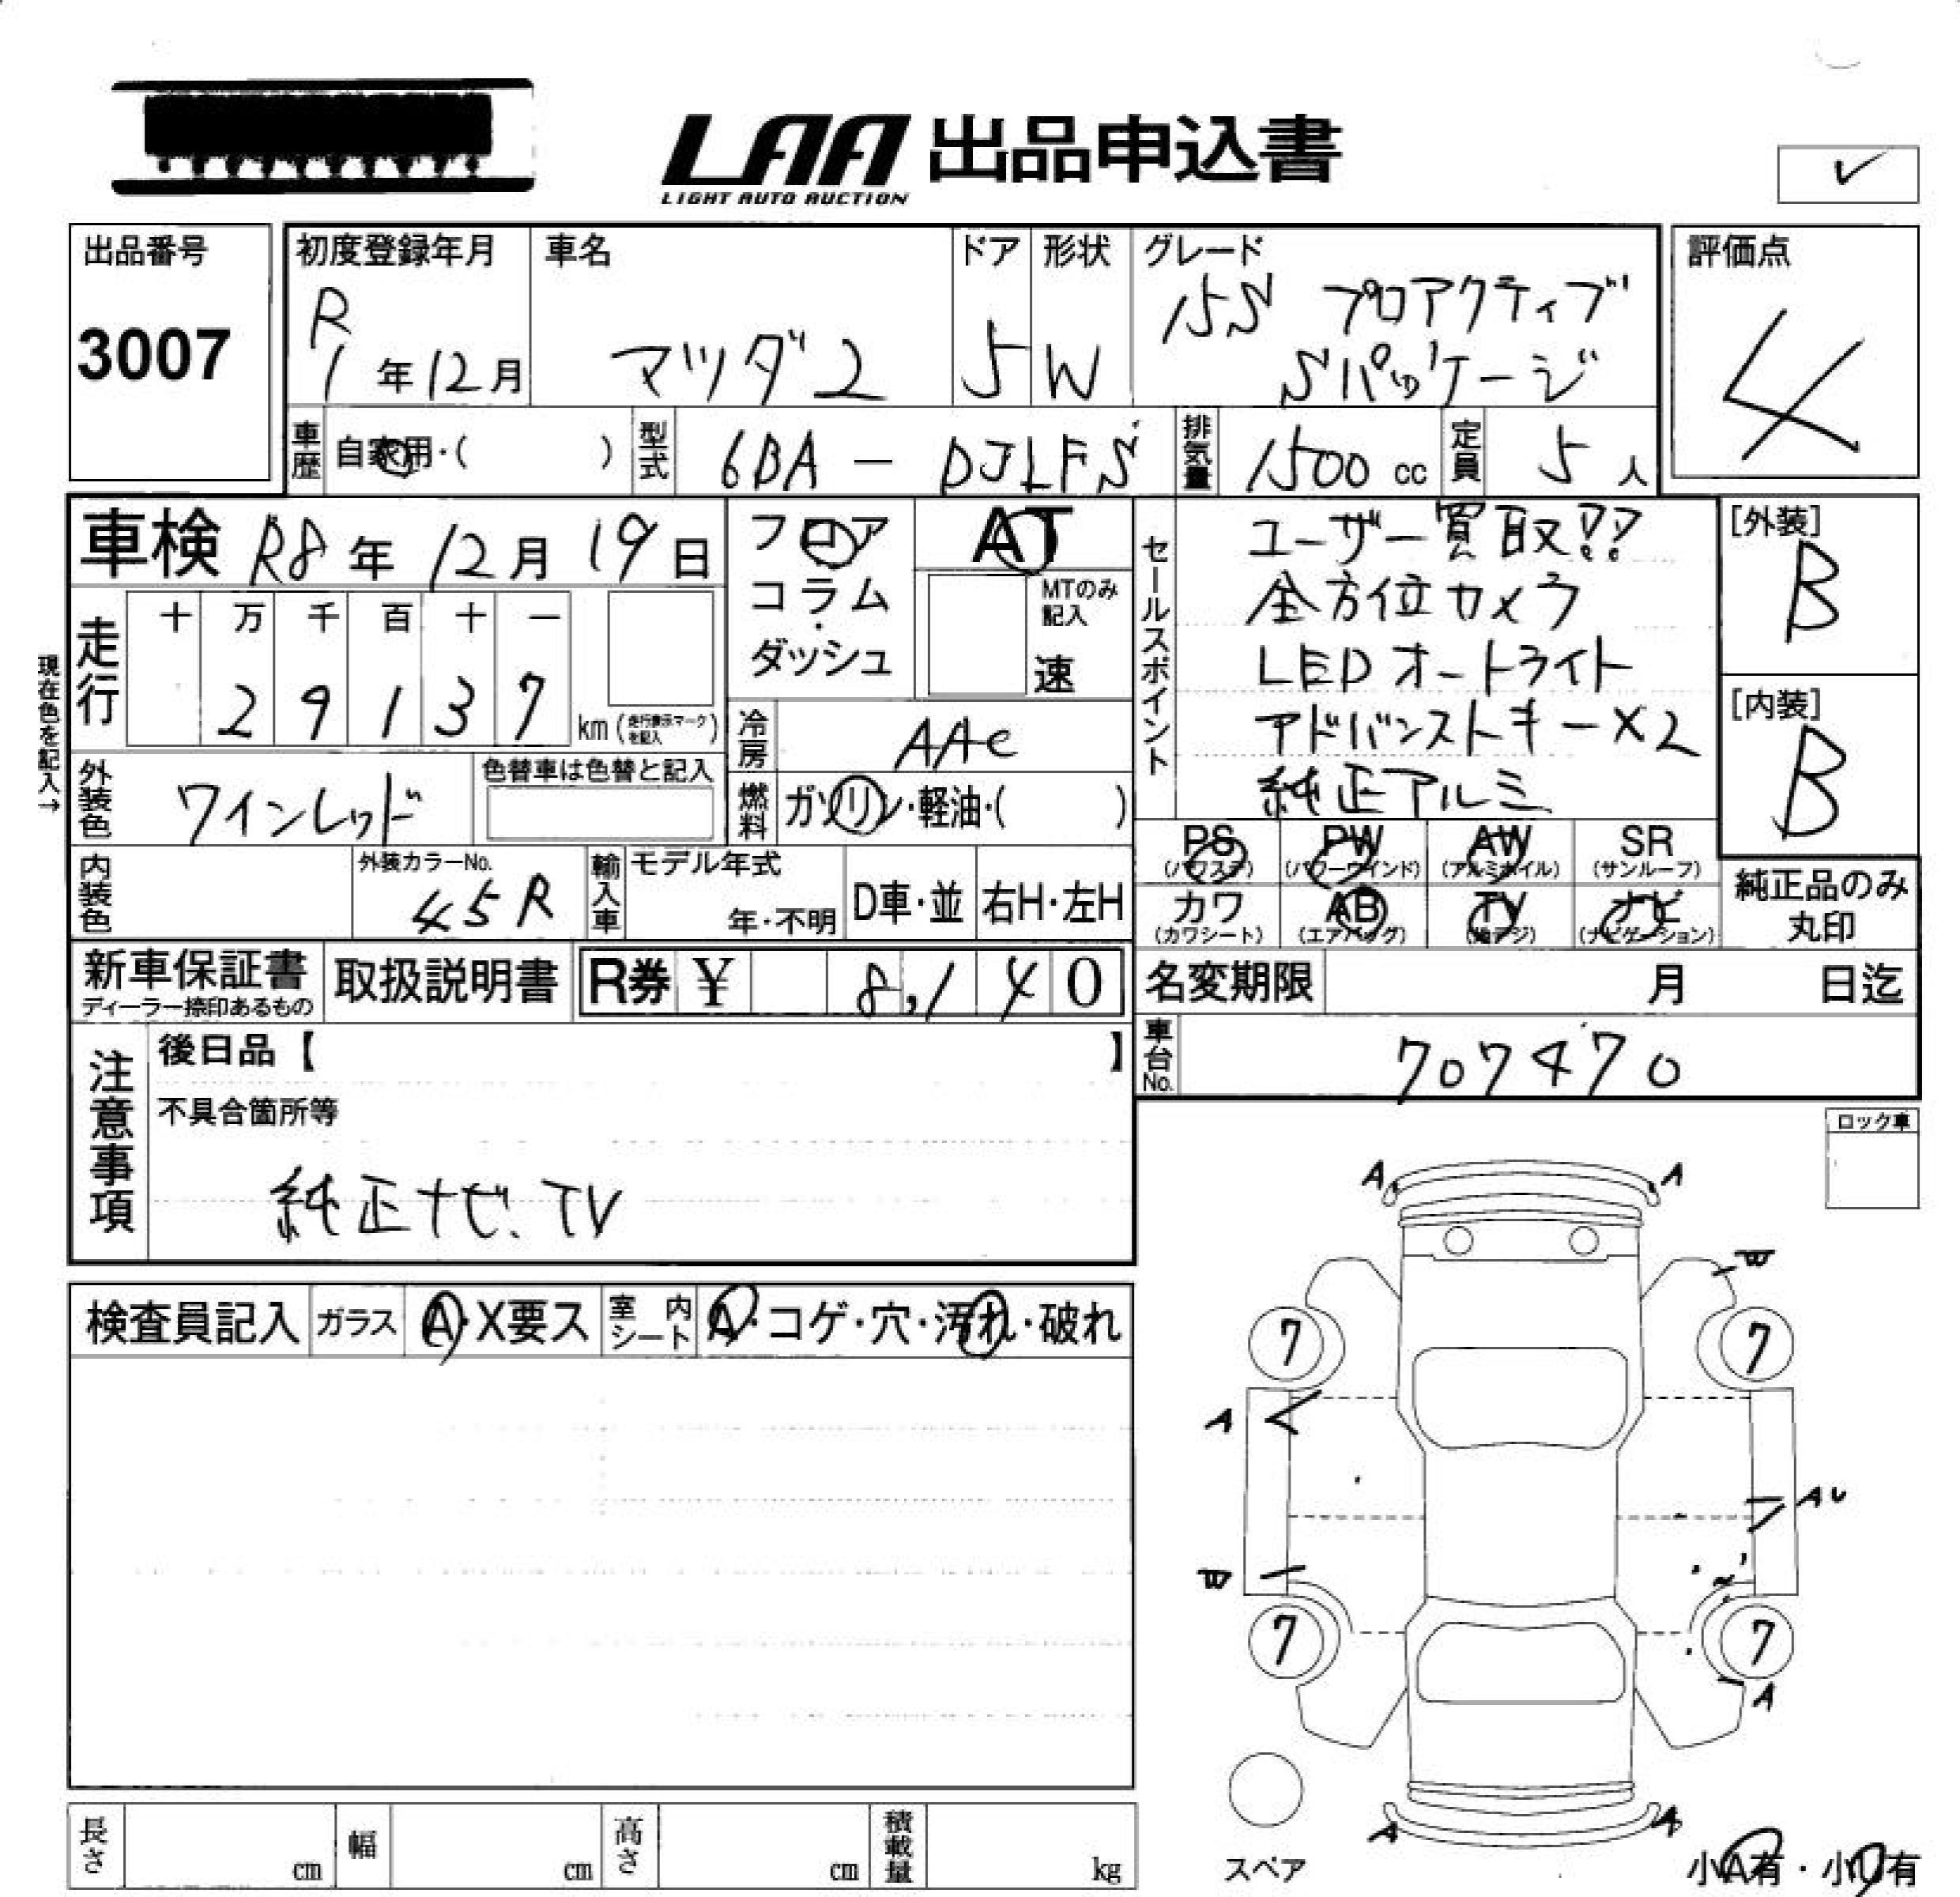 LAA 出品申込書
LIGHT AUTO AUCTION
✓
出品番号
3007
初度登録年月
R
1年12月
車名
マツダ2
ドア
5
形状
W
グレード
15S プロアクティブ
Sパッケージ
評価点
4
車歴 自家用・( )
型式 6BA - DJLFS
排気量 1500 cc
定員 5 人
車検 R8年 12月 19日
現在色を記入→
走行
十 万 千 百 十 一
2 9 1 3 7
km (走行表示マークを記入)
フロア
コラム
・
ダッシュ
AT
MTのみ記入
速
冷房 AAC
燃料 ガソリン・軽油・( )
外装色 ワインレッド
色替車は色替と記入
内装色
外装カラーNo.
45R
輸入車
モデル年式
年・不明
D車・並
右H・左H
セールスポイント
ユーザー買取!!
全方位カメラ
LEDオートライト
アドバンストキー×2
純正アルミ
[外装]
B
[内装]
B
PS (パワステ)
PW (パワーウインド)
AW (アルミホイル)
SR (サンルーフ)
カワ (カワシート)
AB (エアバッグ)
TV (地デジ)
ナビ (ナビゲーション)
純正品のみ
丸印
新車保証書
ディーラー捺印あるもの
取扱説明書
R券 ¥ 8,140
名変期限 月 日迄
車台No. 707470
注意事項
後日品【 】
不具合箇所等
純正ナビ、TV
ロック車
検査員記入
ガラス A・X要ス
室内シート A・コゲ・穴・汚れ・破れ
A A
W
7 7
A
AU
W
7 7
A
A A
スペア
小A有・小U有
長さ cm
幅 cm
高さ cm
積載量 kg